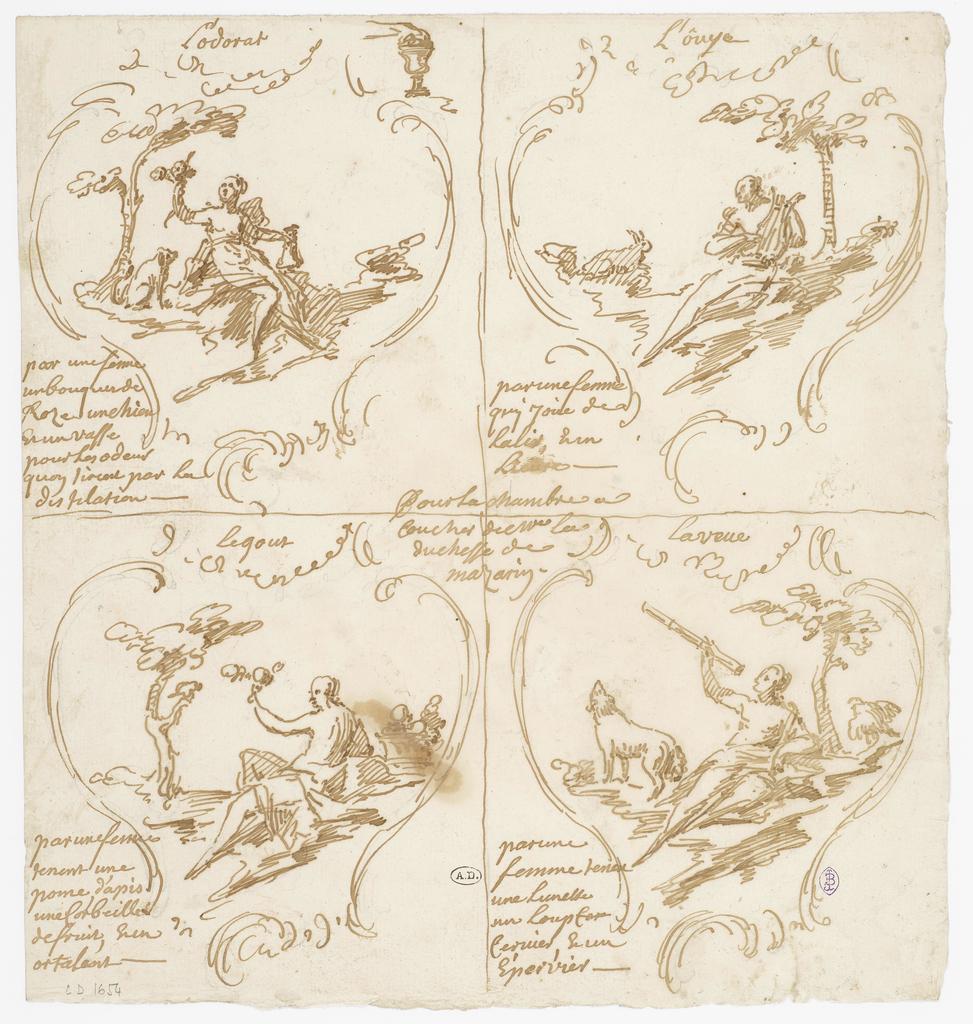 L'odorat
par une femme
un bouquet de
Roze une hien
& un vasse
pour les odeur
quon tirent par la
distilation
L'ouye
par une femme
qui joüe de
la lir, & un
Lievre
Pour la chambre a
coucher de Mme la
duchesse de
mazarin.
Le gout
par une femme
tenent une
pome dapis
une Corbeille
de fruit, & un
ortalant
La veue
par une
femme tenen
une Lunette
un Loup Cer
Cervier, & un
Epervier
A.D.
CD 1654